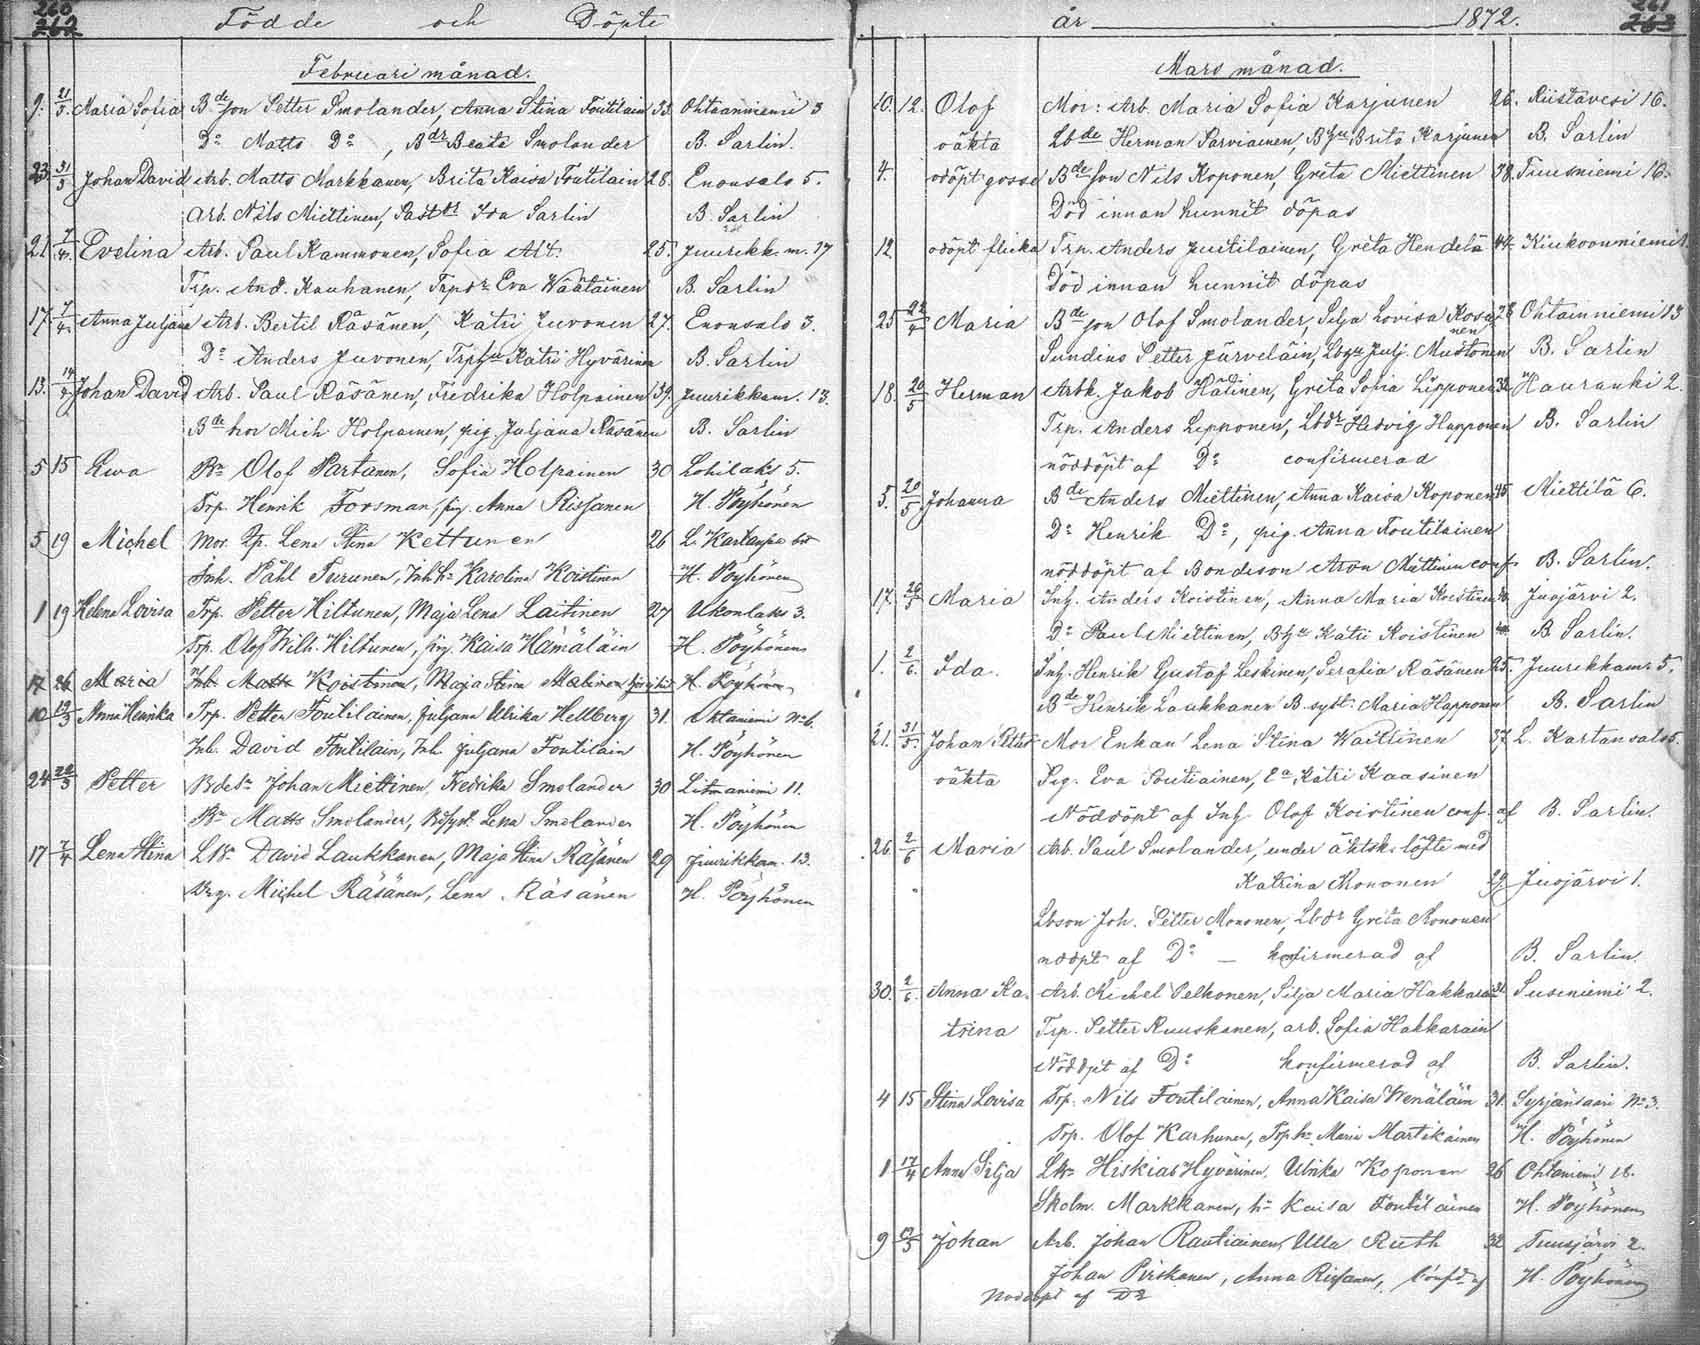 260
262
Födde och Döpte
Februari månad.
9. 21/3. Maria Sofia Bde son Petter Smolander, Anna Stina Toutilain 33. Ohtaanniemi 3
Do Matts Do, Bdr Beata Smolander B. Sarlin.
23. 31/3 Johan David Arb. Matts Markkanen, Brita Kaisa Toutilain 28. Enonsalo 5.
Arb. Nils Miettinen, Ida Sarlin B. Sarlin
21 7/4. Evelina Arb. Paul Kammonen, Sofia 25. Juurikk. m. 17
Trp. And. Kauhanen, Trpdr Eva Wäätäinen B. Sarlin
17. 7/4. Anna Juljana Arb. Bertil Räsänen, Katri Juvonen 27. Enonsalo 3.
Do Anders Juvonen, Katri Hyvärinen B. Sarlin
13. 14/4 Johan David Arb. Paul Räsänen, Fredrika Holpainen 39. Juurikkam. 13.
Bde Mich Holpainen, pig Juljana Räsänen B. Sarlin
5 15 Ewa Bn Olof Partanen, Sofia Holpainen 30 Lohilaks 5.
Trp. Henrik Forsman, pig. Anna Rissanen H. Pöyhönen
5 19 Michel Mor. Lena Stina Kettunen 26 L. Kartansalo
Inh. Påhl Turunen, Inhh. Karolina Koistinen H. Pöyhönen
1 19 Helena Lovisa Trp. Petter Hiltunen, Maja Lena Laitinen 27 Ukonlaks 3.
Trp. Olof Wilh. Hiltunen, pig. Kaisa Hämäläin H. Pöyhönen
17 26 Maria Inh. Matts Koistinen, Maja Stina H. Pöyhönen
10 13/3 Anna Henrika Trp. Petter Toutilainen, Juljana Ulrika Hellberg 31. Ohtaniemi No 6.
Inh. David Toutilain, Inh. Juljana Toutilain H. Pöyhönen
24 22/3 Petter Bdesn Johan Miettinen, Fredrika Smolander 30 Litmaniemi 11.
Bn Matts Smolander, Lena Smolander H. Pöyhönen
17 7/4 Lena Stina David Laukkanen, Maja Stina Räsänen 29 Juurikkam. 13.
Michel Räsänen, Lena Räsänen H. Pöyhönen
261
263
år 1872.
Mars månad.
10. 12. Olof Mor: Arb. Maria Sofia Karjunen 26. Riistavesi 16.
oäkta Lbde Herman Parviainen, Brita Karjunen B. Sarlin
4. odöpt gosse Bde son Nils Koponen, Greta Miettinen 38. Tuusniemi 16.
Död innan hunnit döpas
12 odöpt flicka Trp. Anders Juutilainen, Greta 44.
Död innan hunnit döpas
25 22/4 Maria Bde son Olof Smolander, Silja Lovisa Rosa 28 Ohtainniemi 13
nen
Sundins Petter Järveläin, Julj. Mustonen B. Sarlin
18. 20/5 Herman Arbk. Jakob Hätinen, Greta Sofia Lipponen 32 Hauranki 2.
Trp. Anders Lipponen, Lbdr Hedvig Happonen B. Sarlin
nöddöpt af Do confirmerad
5. 20/5 Johanna Bde Anders Miettinen, Anna Kaisa Koponen 45 Miettilä 6.
Do Henrik Do, pig. Anna Toutilainen
nöddöpt af Bondeson Aron Miettinen conf. B. Sarlin.
17. 26/5 Maria Inh. Anders Koistinen, Anna Maria Koistinen Juojärvi 2.
Do Paul Miettinen, Katri Koistinen B. Sarlin.
1. 2/6. Ida. Inh. Henrik Gustaf Leskinen, Serafia Räsänen 25. Juurikkam. 5.
Bde Henrik Laukkanen B. syst. Maria Happonen B. Sarlin
21. 31/5. Johan Petter Mor Enkan Lena Stina Waittinen 37. L. Kartansalo 5.
oäkta Pig. Eva Poutiainen, Ea Katri Kaasinen
Nöddöpt af Inh Olof Koistinen conf. af B. Sarlin.
26. 2/6 Maria Arb. Paul Smolander, under äktsk. löfte med
Katrina Mononen 29. Juojärvi 1.
Lbson Joh. Petter Mononen, Lbdr Greta Mononen
nödpt af Do — konfirmerad af B. Sarlin.
30. 2/6. Anna Ka- Arb. Michel Pelkonen, Silja Maria Hakkarain 31. Susiniemi 2.
trina Trp. Petter Ruuskanen, arb. Sofia Hakkarain
Nöddöpt af Do konfirmerad af B. Sarlin.
4 15 Stina Lovisa Trp. Nils Toutilainen, Anna Kaisa Wenäläin 31. Syrjänsaari No 3.
Trp. Olof Karhunen, Trph. Maria Martikainen H. Pöyhönen
1 17/4 Anna Silja Hiskias Hyvärinen, Ulrika Koponen 26 Ohtaniemi 18.
Skolm. Markkanen, hu Kaisa Toutilainen H. Pöyhönen
9 Johan Arb. Johan Rautiainen, Ulla Ruth 32 Tuusjärvi 2.
Johan Pirskanen, Anna Rissanen, confd af H. Pöyhönen
Nöddöpt af Do